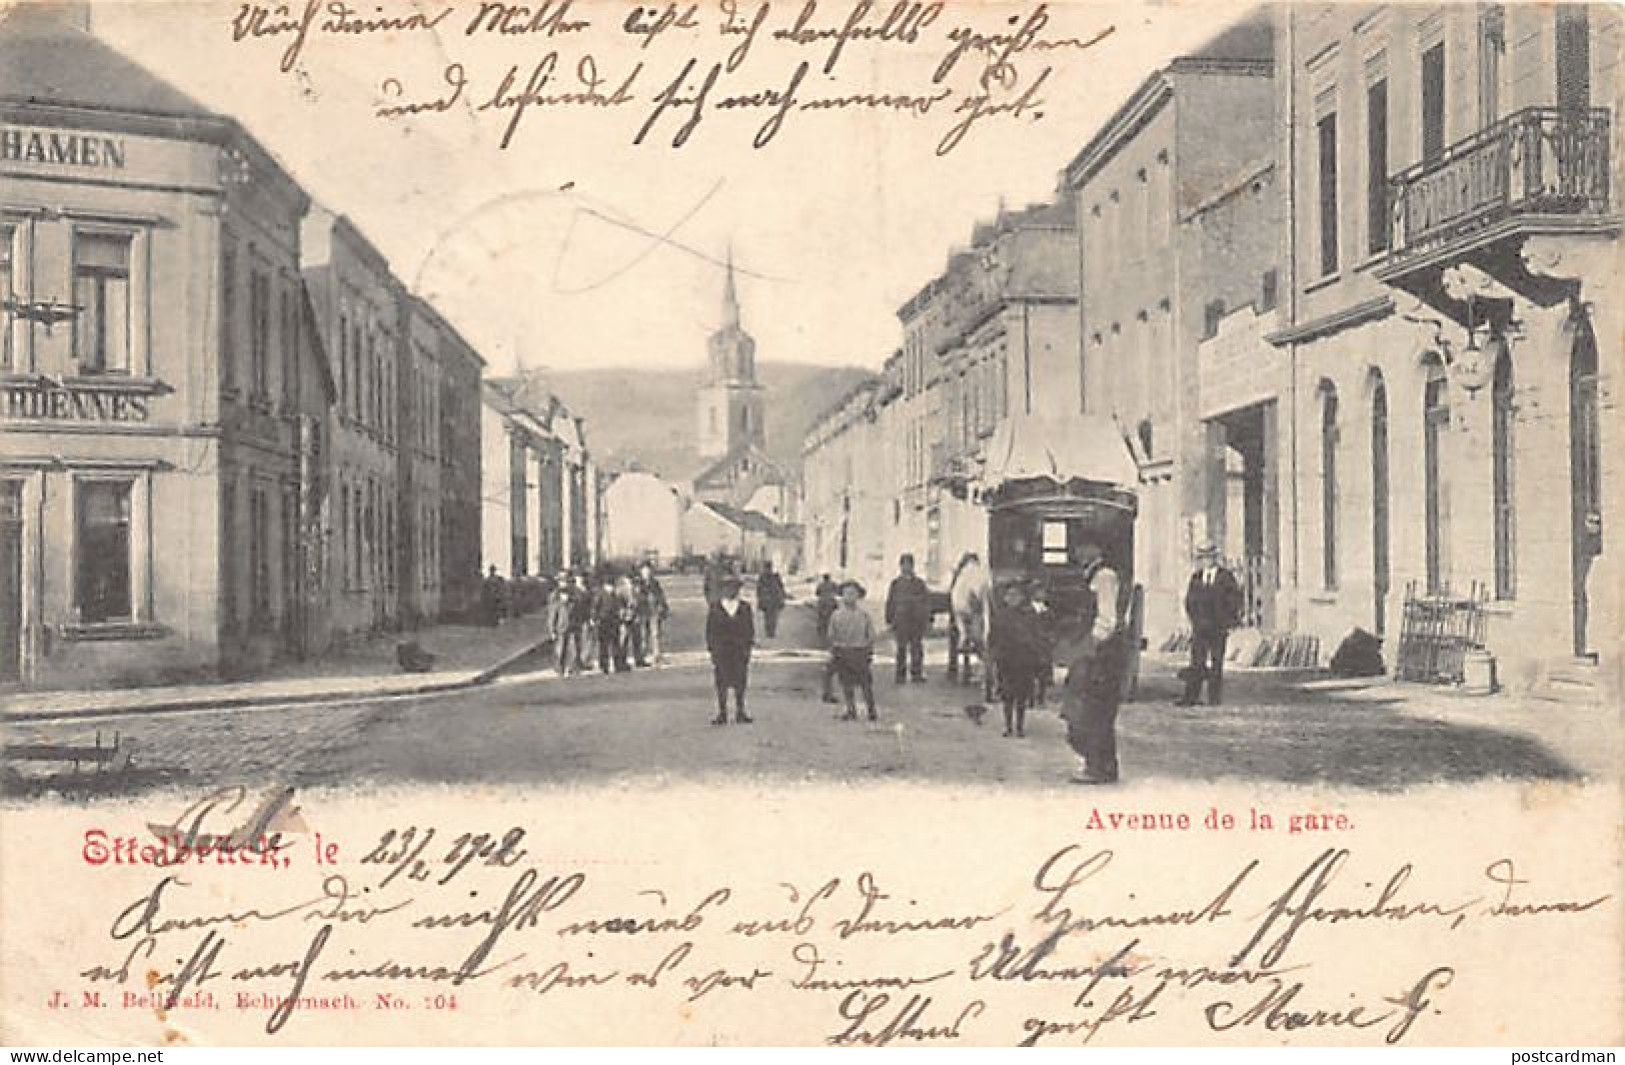 Auch deine Mutter läßt dich ebenfalls grüßen
und befindet sich noch immer gut.
HAMEN
RDENNES
Avenue de la gare.
Ettelbrück, le 23/2 1902
Kann Dir nichts neues aus deiner Heimat schreiben, denn
es ist noch immer wie es vor deiner Abreise war
J. M. Bellwald, Echternach. No. 104
Bestens grüßt Marie G.
postcardman